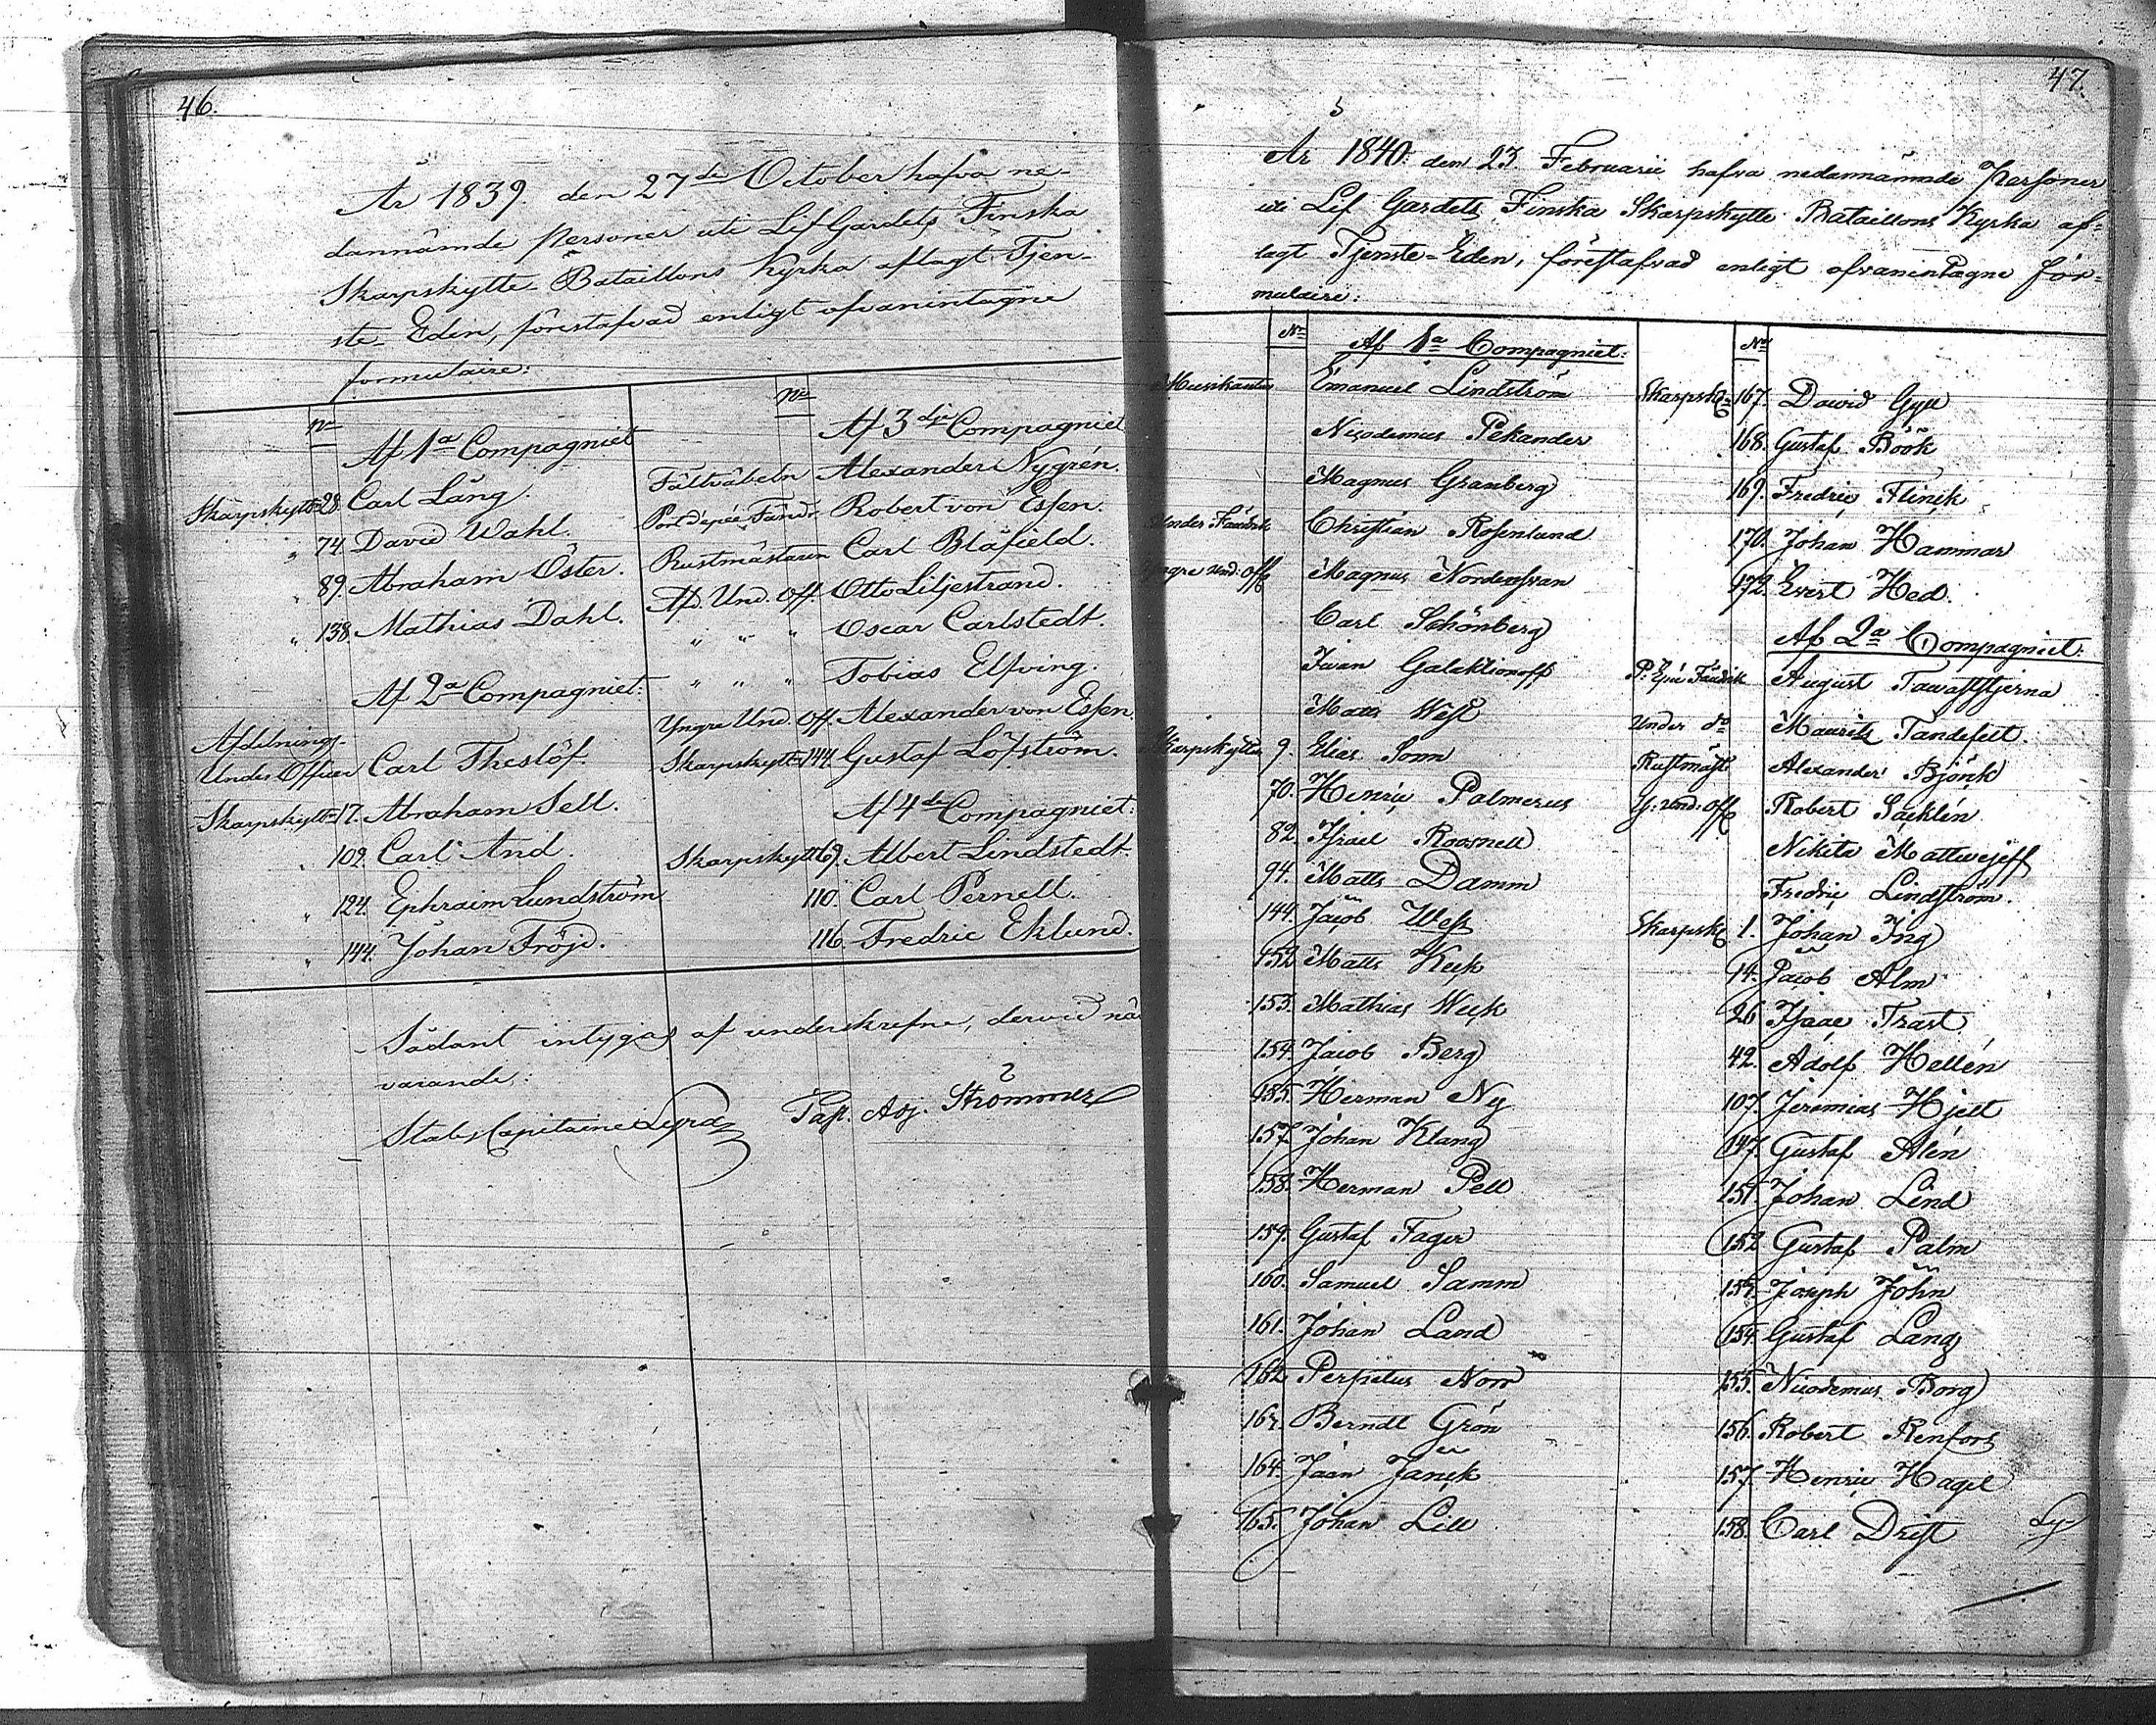 46.
År 1839. den 27de October hafva ne-
dannämde Personer uti LifGardets Finska
Skarpskytte-Bataillons Kyrka aflagt Tjen-
ste-Eden, förestafvad enligt ofvanintagne
formulaire:
No
Af 1a Compagniet
Skarpskytt 28. Carl Lång.
" 74. David Wahl.
" 89. Abraham Öster.
" 138. Mathias Dahl.
Af 2a Compagniet:
Afdelnings-
Under Officer Carl Theslöf.
Skarpskytt 17. Abraham Sell.
" 109. Carl And.
" 124. Ephraim Lundström
" 144. Johan Fröjd.
No
Af 3die Compagniet
Fältväbeln Alexander Nygrén.
Port d'epée Fändr. Robert von Essen.
Rustmästaren Carl Blåfield.
Afd. Und. Off. Otto Liljestrand.
" " " Oscar Carlstedt.
" " " Tobias Elfving.
Yngre Und. Off. Alexander von Essen.
Skarpskytt 144. Gustaf Löfström.
Af 4de Compagniet:
Skarpskytt 69. Albert Lindstedt.
110. Carl Pernell.
116. Fredric Eklund.
Sådant intygas af underskrefne, dervid när
varande:
StabsCapitaine Lyra Past. Adj. Strömmer
47.
År 1840. den 23 Februarii hafva nedannämnde Personer
uti Lif Gardets Finska Skarpskytte Bataillons Kyrka af-
lagt Tjenste-Eden, förestafvad enligt ofvanintagne för-
mulaire:
No
Af 1a Compagniet:
Musikanter Emanuel Lindström
Nicodemus Pekander
Magnus Granberg
Under Fändrik Christian Rosenlund
Yngre Und: Off Magnus Nordensvan
Carl Schönberg
Iwan Galaktionoff
Matts West
Skarpskytten 9. Elias Sonn
70. Henric Palmerus
82. Israel Roosnell
94. Matts Damm
144. Jacob West
152. Matts Keck
153. Mathias Week
154. Jacob Berg
185. Herman Ny
157. Johan Klang
158. Herman Pell
159. Gustaf Fager
160. Samuel Samm
161. Johan Land
162. Perpetus Norr
163. Berndt Grön
164. Jaan Janick
165. Johan Lill
No
Skarpsk: 167. David Gyll
168. Gustaf Böök
169. Fredric Flinck
170. Johan Hammar
172. Evert Hed.
Af 2a Compagniet:
P: Epée Fändrik August Tawaststjerna
Under do Mauritz Tandefelt.
Rustmäst Alexander Björck
Y: Und: Off Robert Sacklén
Nikita Mattwejeff
Fredric Lindström.
Skarpsk 1. Johan Ing
14. Jacob Alm
26. Isaac Trast
42. Adolf Hellén
107. Jeremias Hjelt
147. Gustaf Alén
151. Johan Lind
152. Gustaf Palm
153. Joseph John
154. Gustaf Lang
155. Nicodemus Borg
156. Robert Renfors
157. Henric Hagel
158. Carl Drift